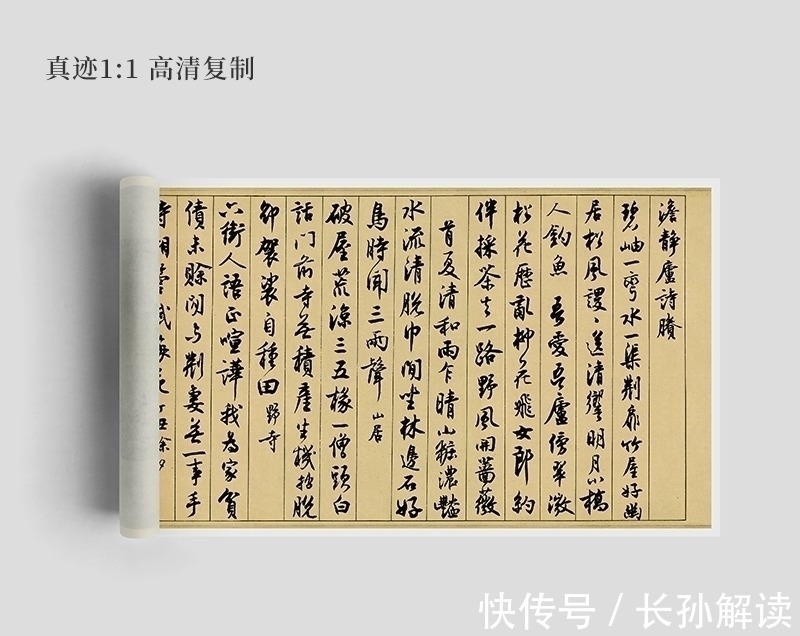 真迹1:1 高清复制
澹静廬詩賸
碧岫一弯水一渠荆扉竹屋好幽
居松風謖〻進清響明月小橋
人釣魚 吾愛吾廬傍翠微
松花歷亂柳花飛女郎約
伴採茶去一路野風開薔薇
首夏清和雨乍晴山粧濃豔
水流清脫巾閒坐林邊石好
鳥時聞三兩聲 山居
破屋荒涼三五椽一僧頭白
話門前寺無積產生機拙脫
卻袈裟自種田 野寺
六街人語正喧譁我為家貧
債未賒閉與荆妻無一事手
除夕
快传号 / 长孙解读